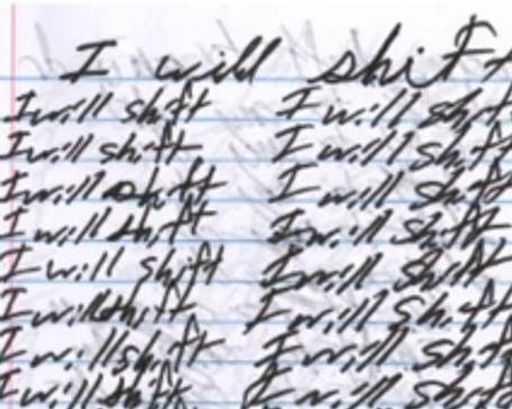 I will shift
I will shift I will shift
I will shift I will shift
I will shift I will shift
I will shift I will shift
I will shift I will shift
I will shift I will shift
I will shift I will shift
I will shift I will shift